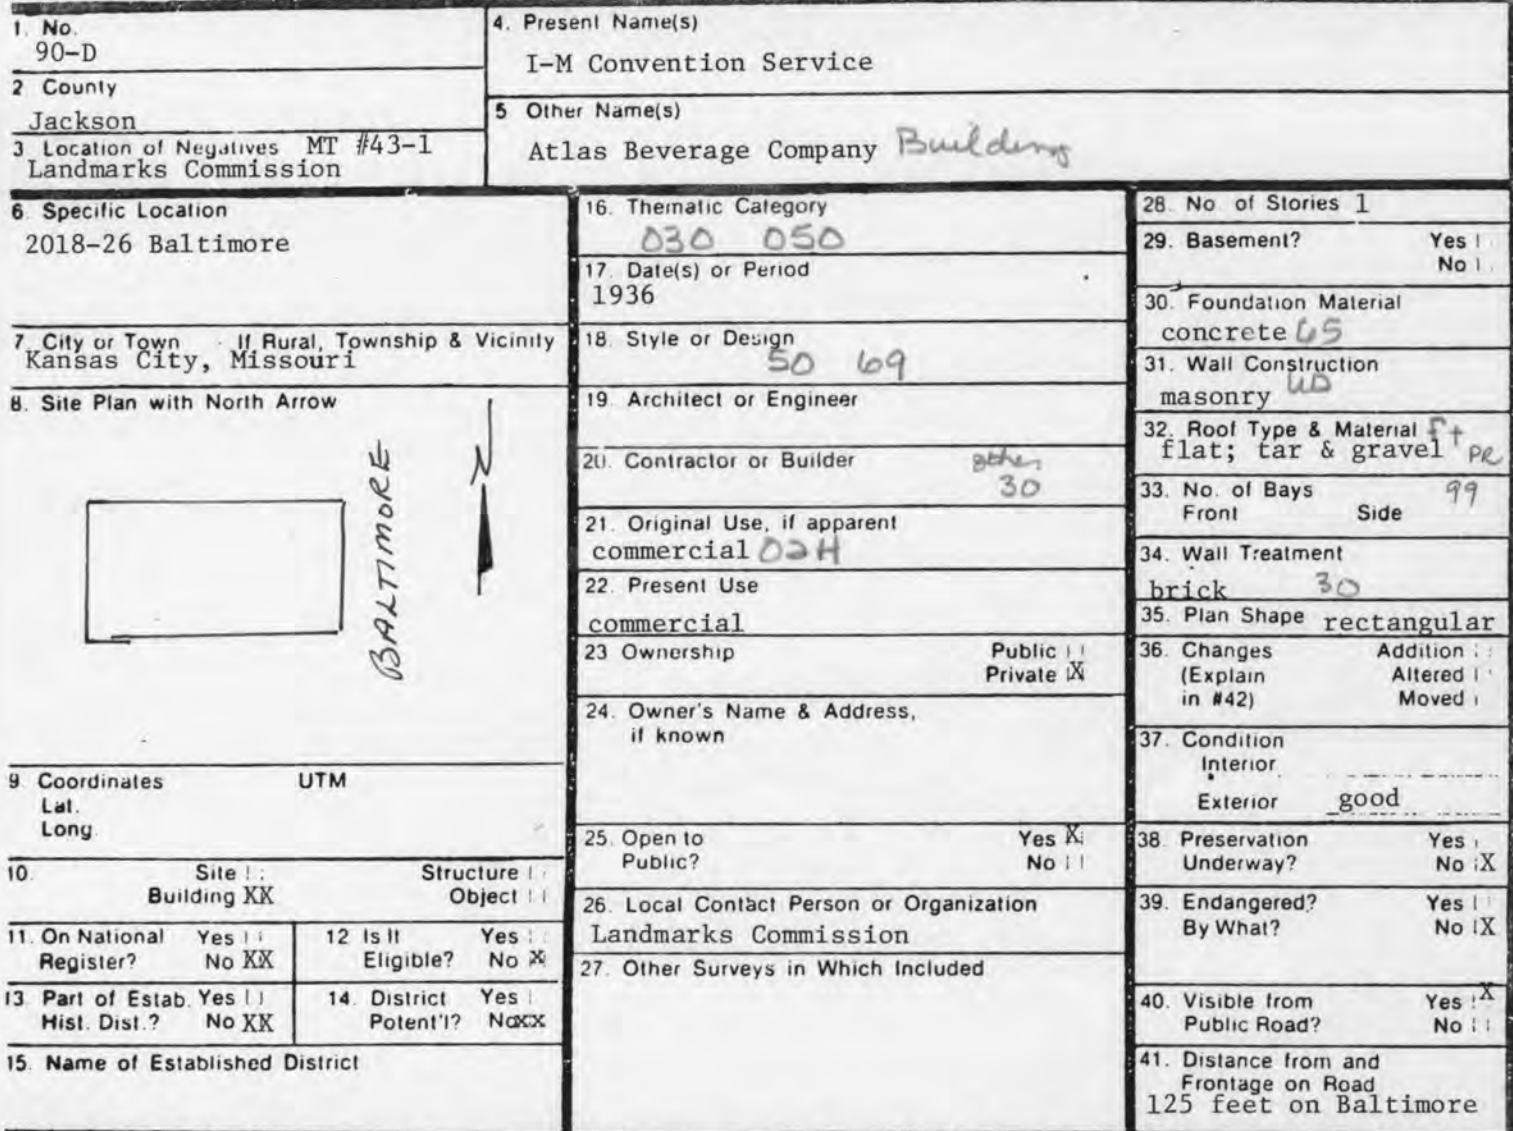 1. No.
90-D
2 County
Jackson
3 Location of Negatives MT #43-1
Landmarks Commission
4. Present Name(s)
I-M Convention Service
5 Other Name(s)
Atlas Beverage Company Building
6. Specific Location
2018-26 Baltimore
7. City or Town If Rural, Township & Vicinity
Kansas City, Missouri
8. Site Plan with North Arrow
BALTIMORE
N
9. Coordinates UTM
Lat.
Long.
10. Site Structure
Building XX Object
11. On National Yes
Register? No XX
12 Is It Yes
Eligible? No X
13. Part of Estab. Yes
Hist. Dist.? No XX
14. District Yes
Potent'l? No XX
15. Name of Established District
16. Thematic Category
030 050
17. Date(s) or Period
1936
18. Style or Design
50 69
19. Architect or Engineer
20. Contractor or Builder other
30
21. Original Use, if apparent
commercial 02H
22. Present Use
commercial
23 Ownership Public
Private X
24. Owner's Name & Address,
if known
25. Open to Yes X
Public? No
26. Local Contact Person or Organization
Landmarks Commission
27. Other Surveys in Which Included
28. No. of Stories 1
29. Basement? Yes
No
30. Foundation Material
concrete 65
31. Wall Construction
masonry
32. Roof Type & Material
flat; tar & gravel PR
33. No. of Bays 99
Front Side
34. Wall Treatment
brick 30
35. Plan Shape rectangular
36. Changes Addition
(Explain Altered
in #42) Moved
37. Condition
Interior
Exterior good
38. Preservation Yes
Underway? No X
39. Endangered? Yes
By What? No X
40. Visible from Yes X
Public Road? No
41. Distance from and
Frontage on Road
125 feet on Baltimore